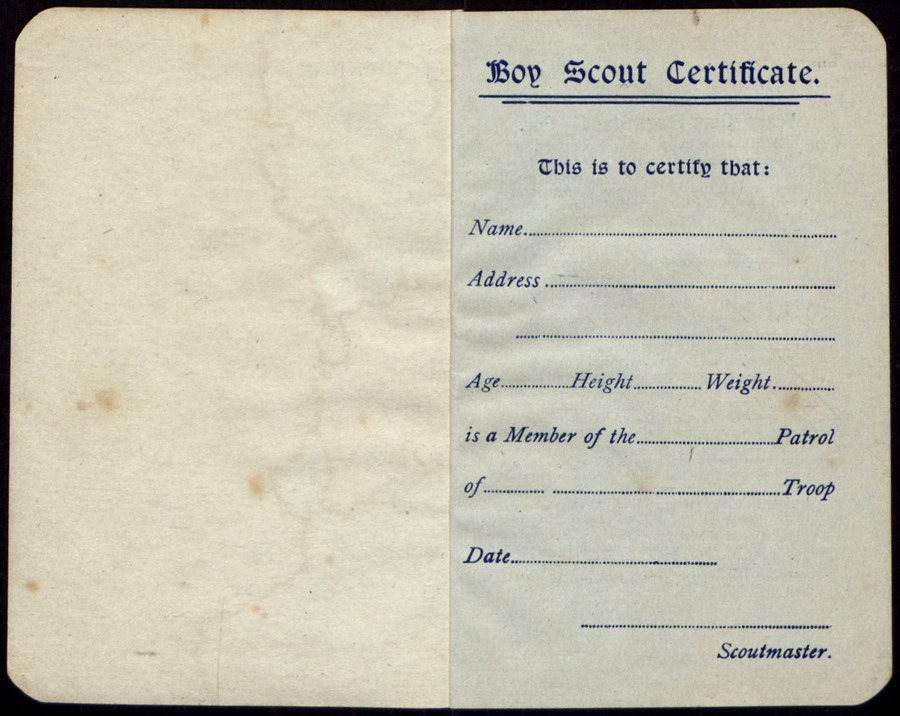 Boy Scout Certificate.
This is to certify that:
Name
Address
Age Height Weight
is a Member of the Patrol
of Troop
Date
Scoutmaster.